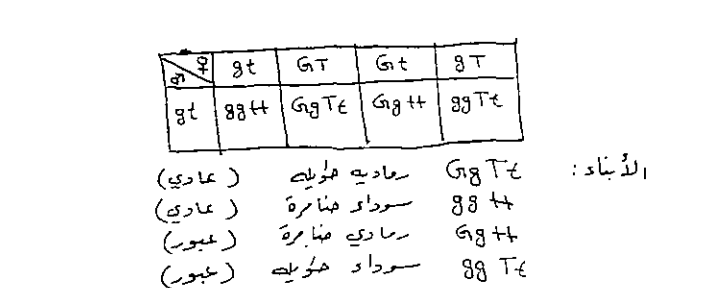 ♂ ♀ gt GT Gt gT
gt ggtt GgTt Ggtt ggTt
الأبناء: GgTt رمادية طويلة (عادي)
ggtt سوداء ضامرة (عادي)
Ggtt رمادي ضامرة (عبور)
ggTt سوداء طويلة (عبور)